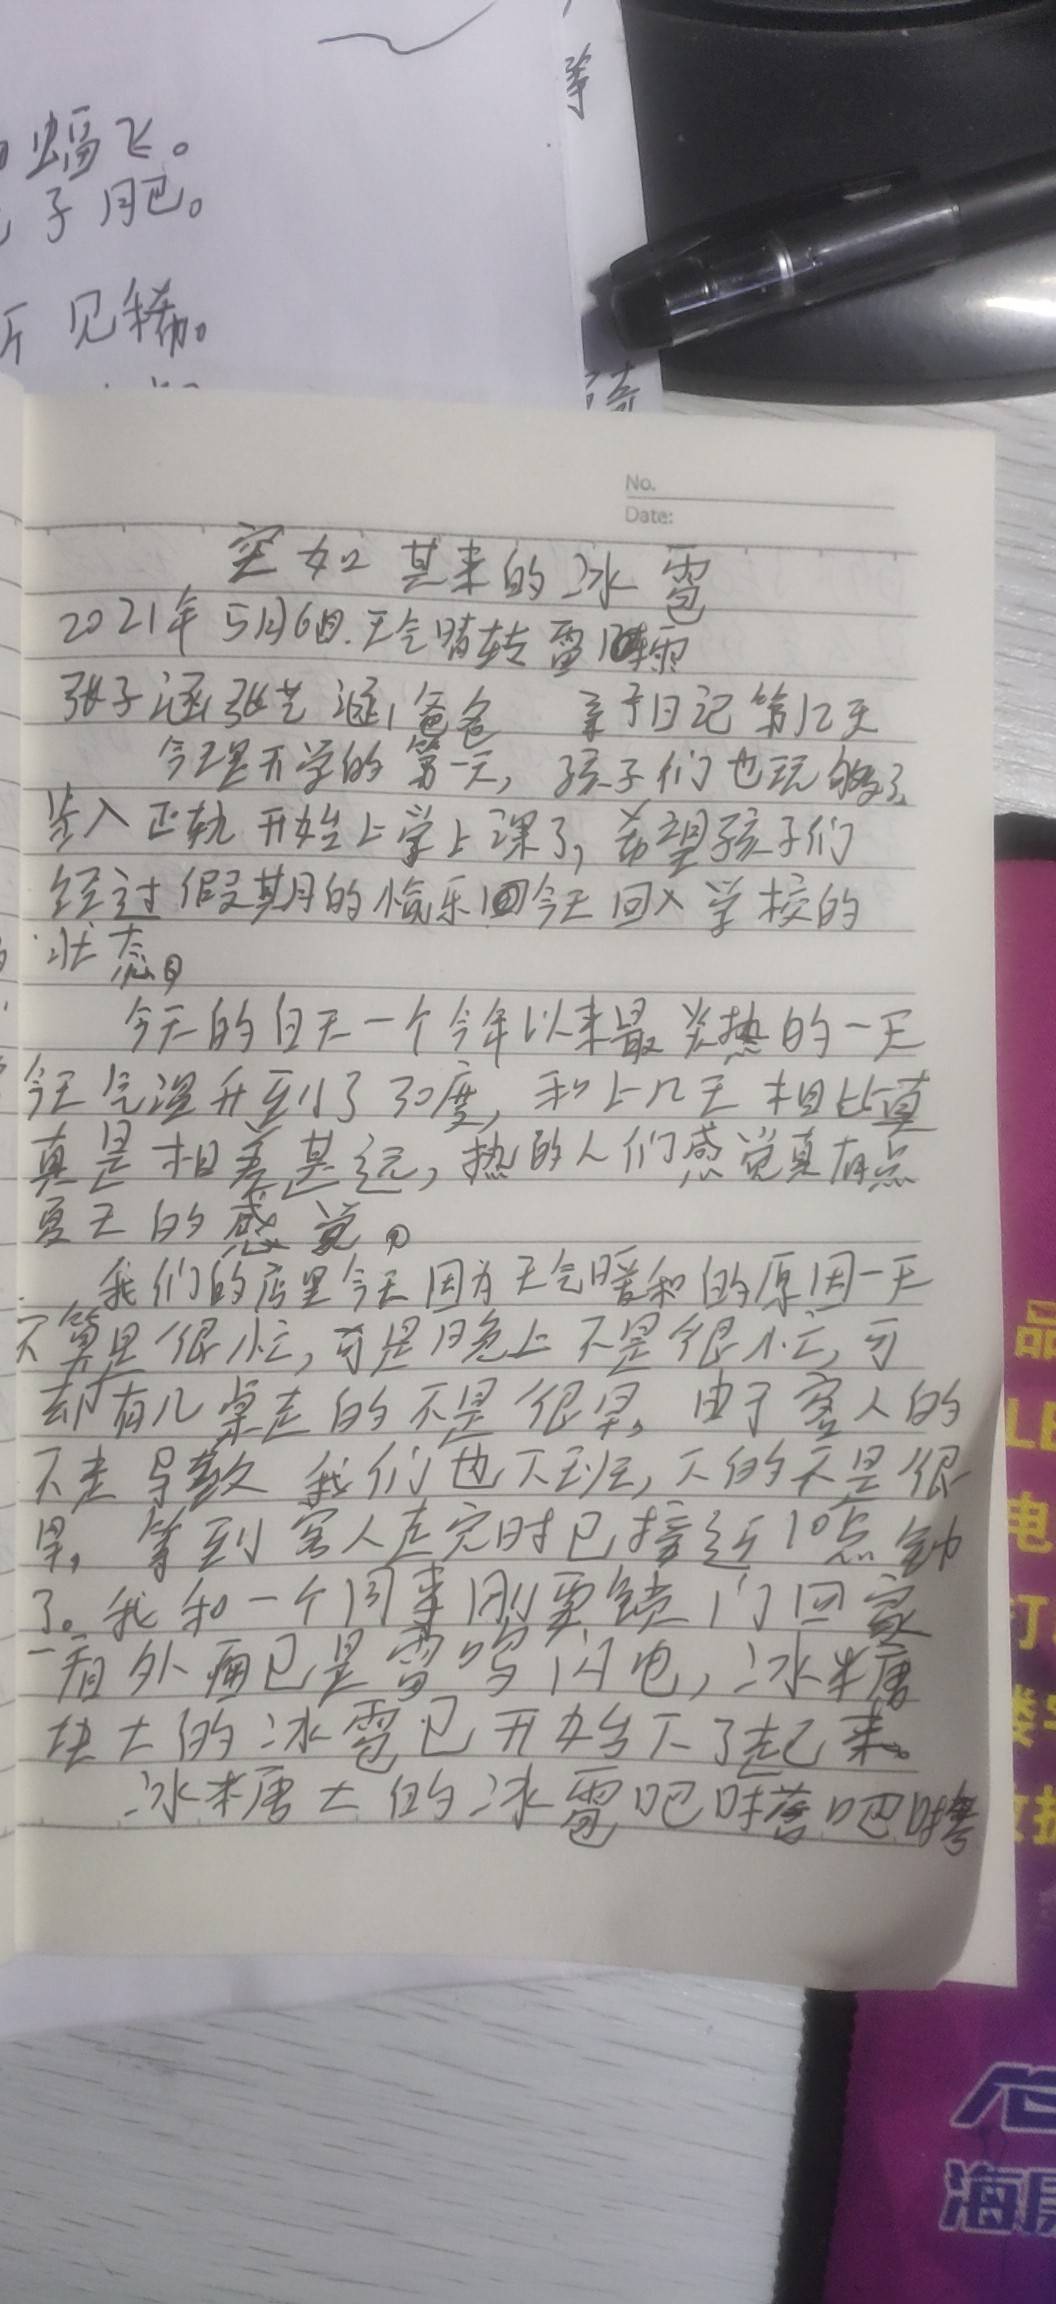 等
蝠飞。
子肥。
见稀。
No.
Date:
突如其来的冰雹
2021年5月6日.天气晴转雷阵雨
张子涵,张艺涵,爸爸 亲子日记第12天
今天是开学的第一天,孩子们也玩够了,
步入正轨开始上学上课了,希望孩子们
经过假期的愉乐今天回入学校的
状态。
今天的白天一个今年以来最炎热的一天
今天气温升到了30度,和上几天相比真
真是相差甚远,热的人们感觉真有点
夏天的感觉。
我们的店里今天因为天气暖和的原因一天
不算是很忙,可是晚上不是很忙,可
却有几桌走的不是很早。由于客人的
不走导致我们也下班,下的不是很
早,等到客人走完时已接近10点钟
了。我和一个同事刚要锁门回家
一看外面已是雷鸣闪电,冰糖
块大的冰雹已开始下了起来。
冰糖大的冰雹吧嗒吧嗒
品
电
海